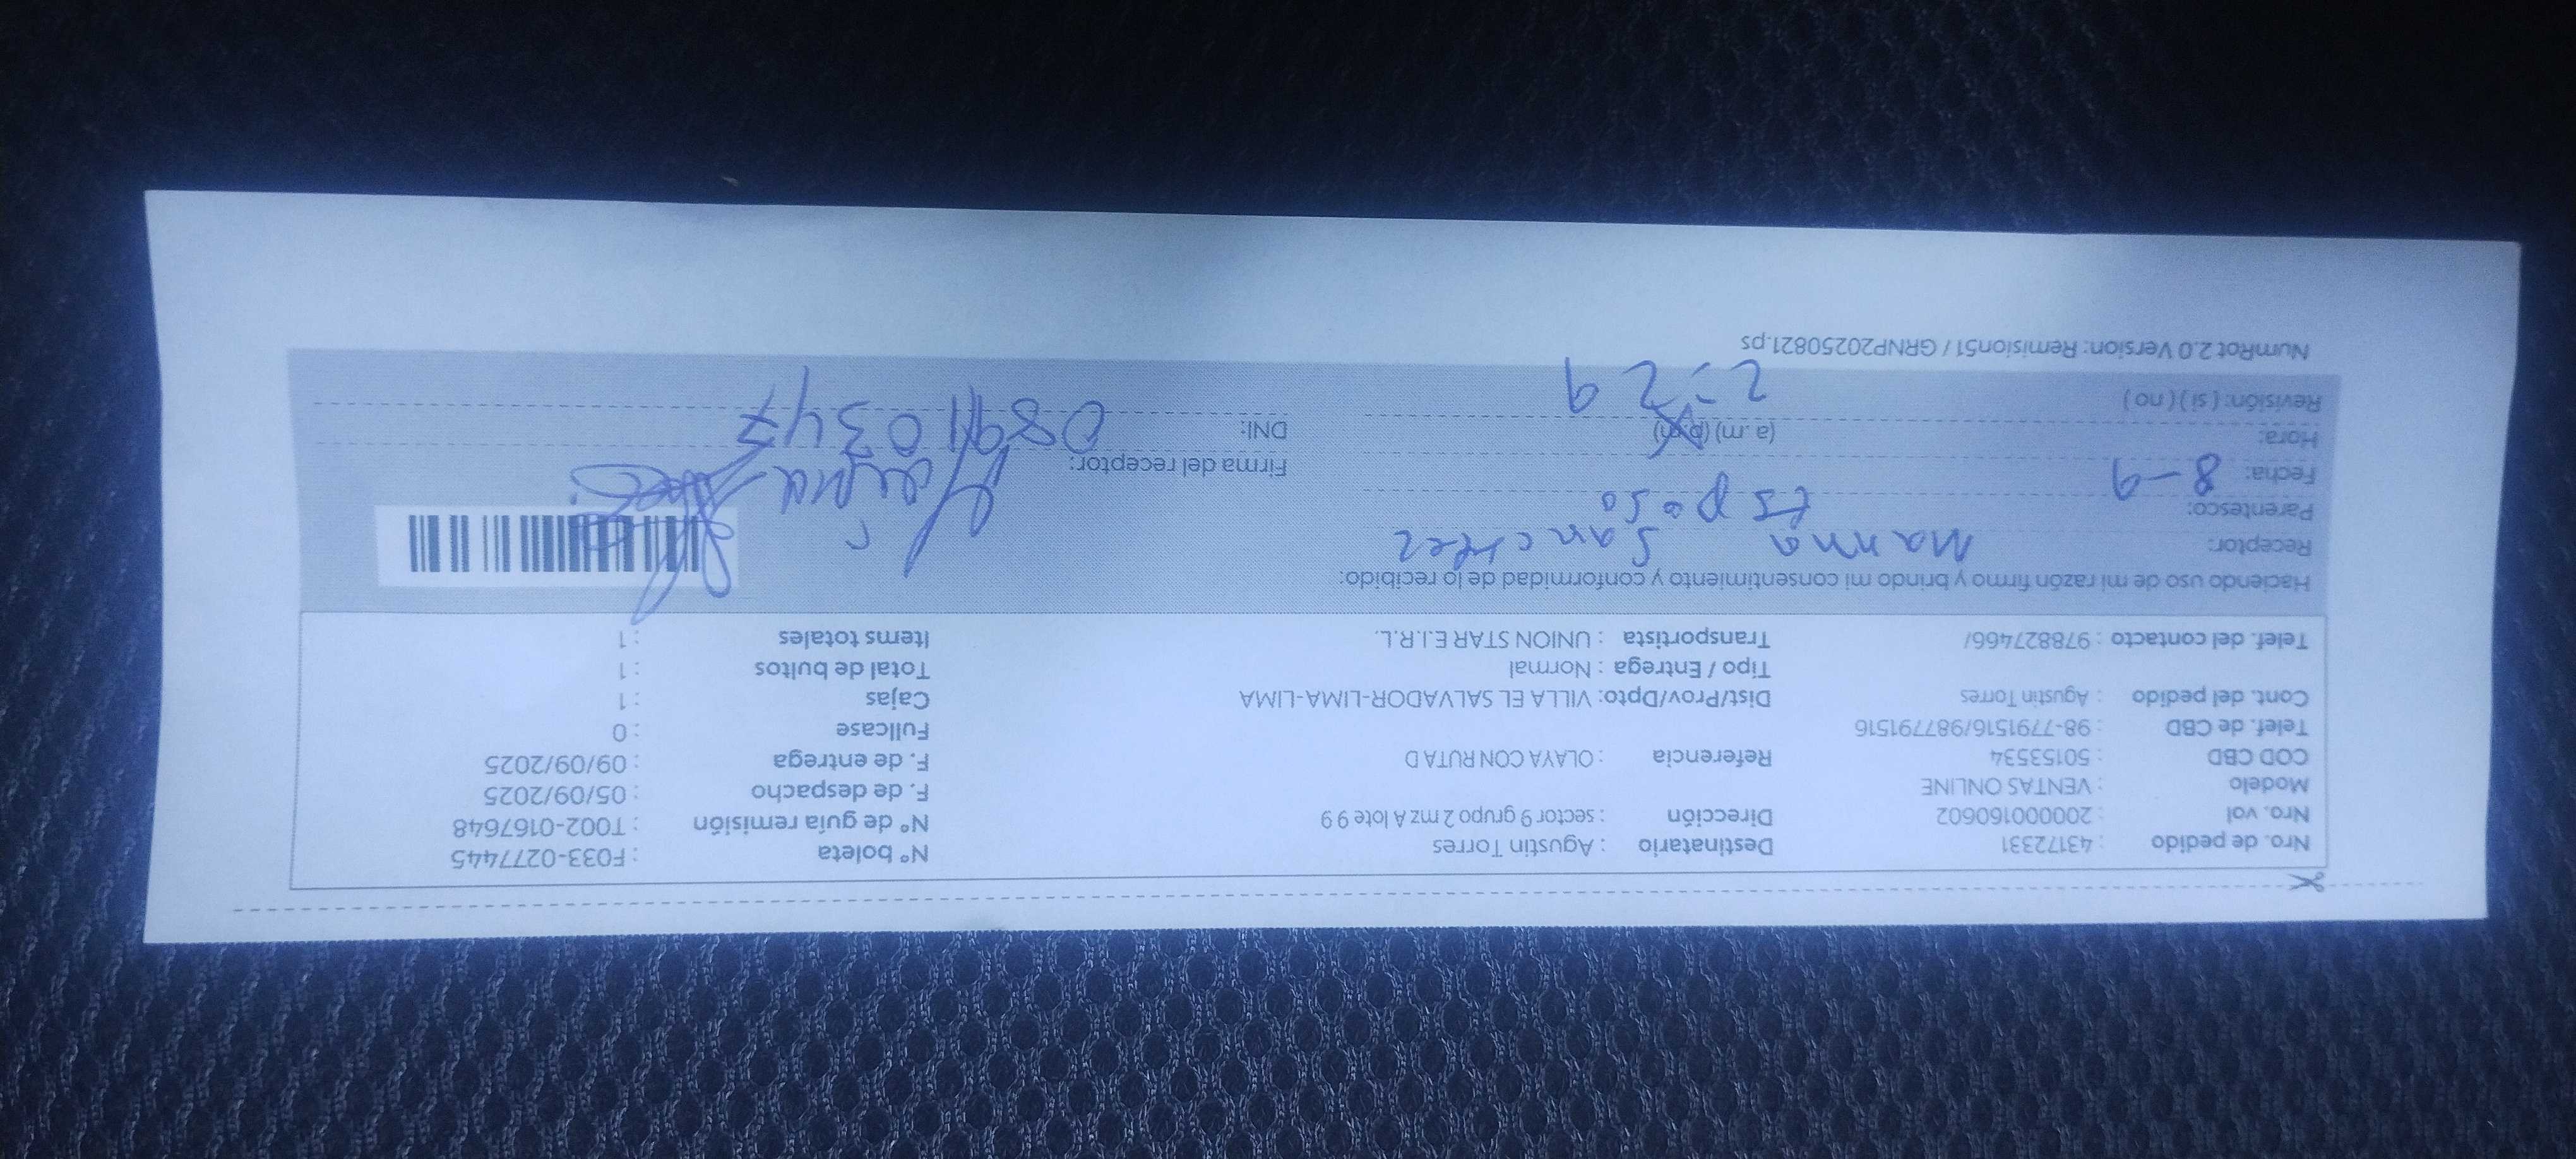 Nro. de pedido : 43172331 Destinatario : Agustin Torres N° boleta : F033-0277445
Nro. vol : 20000160602 Dirección : sector 9 grupo 2 mz A lote 9 9 N° de guía remisión : T002-0167648
Modelo : VENTAS ONLINE F. de despacho : 05/09/2025
COD CBD : 50153534 Referencia : OLAYA CON RUTA D F. de entrega : 09/09/2025
Telef. de CBD : 98-7791516/987791516 Fullcase : 0
Cont. del pedido : Agustin Torres Dist/Prov/Dpto: VILLA EL SALVADOR-LIMA-LIMA Cajas : 1
Tipo / Entrega : Normal Total de bultos : 1
Telef. del contacto : 978827466/ Transportista : UNION STAR E.I.R.L. Items totales : 1
Haciendo uso de mi razón firmo y brindo mi consentimiento y conformidad de lo recibido:
Receptor: Sanchez
Parentesco: Esposo
Fecha: 8-9 Firma del receptor:
Hora: (a.m) (p.m) DNI: 08910347
2:29
Revisión: ( si ) ( no )
NumRot 2.0 Version: Remision51 / GRNP20250821.ps